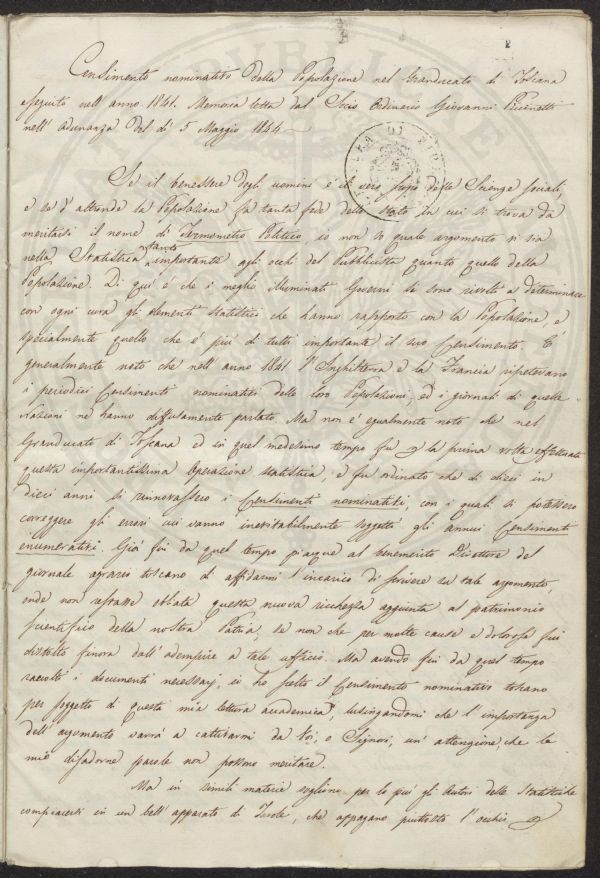 Censimento nominativo della Popolazione nel Granducato di Toscana
eseguito nell'anno 1841. Memoria letta dal Socio Ordinario Giovanni
nell'Adunanza del dì 5 Maggio 1844.
Se il benessere degli uomini è il vero scopo delle Scienze sociali,
e se d'altronde la Popolazione fa tanta fede dello stato in cui si trova da
meritarsi il nome di Termometro Politico, io non so quale argomento vi sia
nella Statistica tanto importante agli occhi del Pubblicista quanto quello della
Popolazione. Di quì è che i meglio illuminati Governi si sono rivolti a determinare
con ogni cura gli elementi statistici che hanno rapporto con la Popolazione, e
specialmente quello che è più di tutti importante il suo Censimento. È
generalmente noto che nell'anno 1841 l'Inghilterra e la Francia ripetevano
i periodici Censimenti nominativi delle loro Popolazioni, ed i giornali di quelle
Nazioni ne hanno diffusamente parlato. Ma non è egualmente noto che nel
Granducato di Toscana ed in quel medesimo tempo fu p la prima volta effettuata
questa importantissima operazione statistica, e fu ordinato che di dieci in
dieci anni si rinnovassero i Censimenti nominativi, con i quali si potessero
correggere gli errori cui vanno inevitabilmente soggetti gli annui Censimenti
enumerativi. Già fin da quel tempo piacque al benemerito Direttore del
giornale agrario toscano di affidarmi l'incarico di scrivere su tale argomento,
onde non restasse obliata questa nuova ricchezza aggiunta al patrimonio
scientifico della nostra Patria, se non che per molte cause e dolorose fui
distolto finora dall'adempire a tale ufficio. Ma avendo fin da quel tempo
raccolti i documenti necessarj, io ho scelto il Censimento nominativo toscano
per soggetto di questa mia lettura accademica, lusingandomi che l'importanza
dell'argomento varrà a cattivarmi da Voi, o Signori, un'attenzione, che le
mie disadorne parole non possono meritare.
Ma in simili materie sogliono per lo più gli Autori delle Statistiche
compiacersi in un bell'apparato di Tavole, che appagano piuttosto l'occhio p